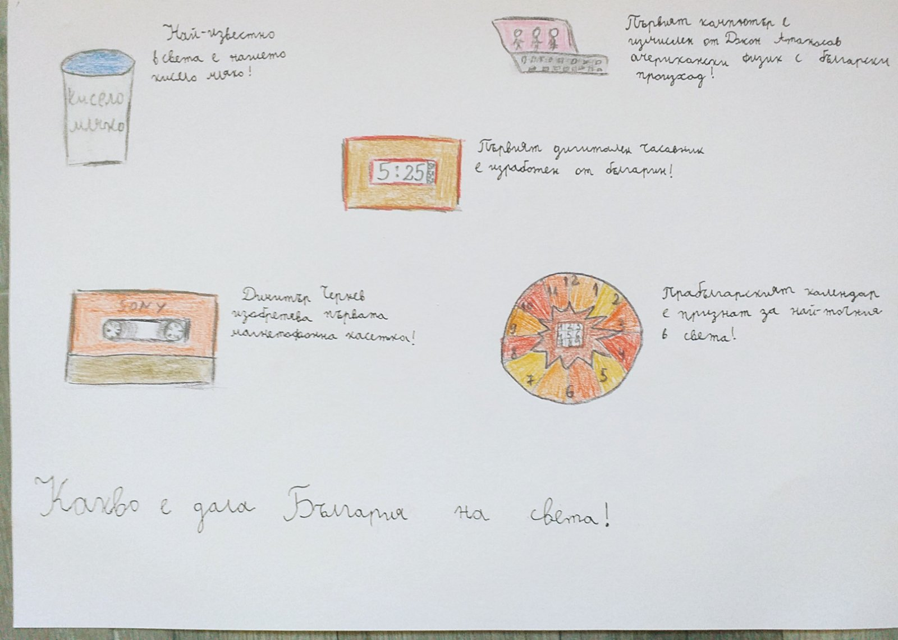 Най-известно
в света е нашето
кисело мляко!
Кисело
мляко
Първият компютър е
измислен от Джон Атанасов
американски физик с български
произход!
5:25
Първият дигитален часовник
е изработен от българин!
SONY
Димитър Чернев
изобретява първата
магнетофонна касетка!
12
1
2
3
4
5
6
7
8
9
10
11
Прабългарският календар
е признат за най-точния
в света!
Какво е дала България на света!